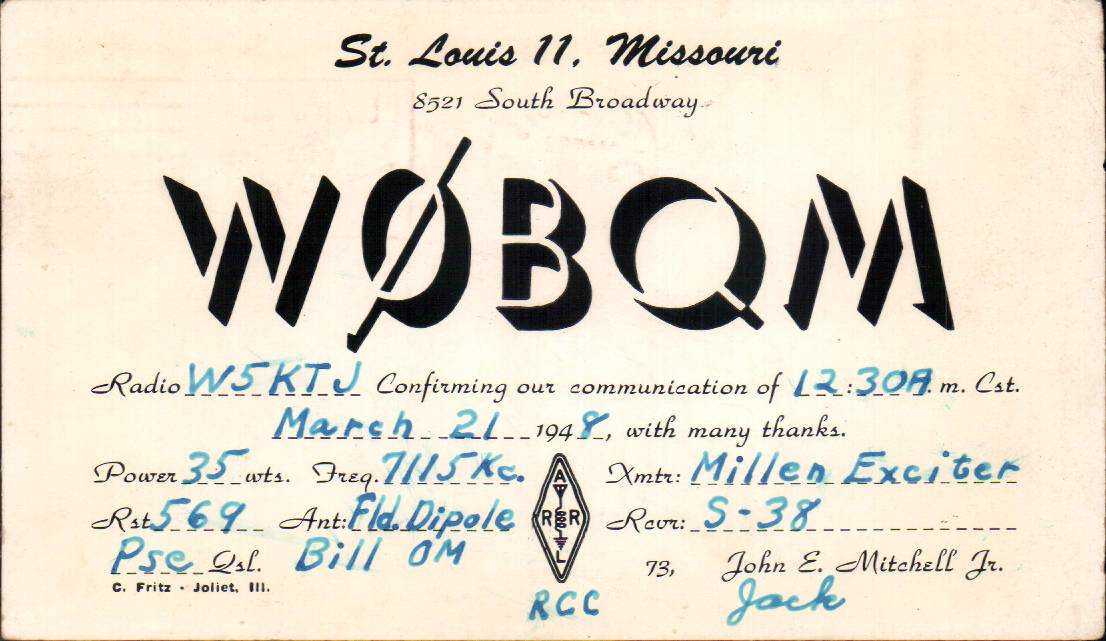 St. Louis 11, Missouri
8521 South Broadway
WØBQM
Radio W5KTJ Confirming our communication of 12:30A.m. Cst.
March 21 1948, with many thanks.
Power 35 wts. Freq. 7115 Kc. Xmtr: Millen Exciter
Rst 569 Ant: Fld. Dipole A R R L Rcvr: S-38
Pse Qsl. Bill OM 73, John E. Mitchell Jr.
C. Fritz - Joliet, Ill. RCC Jack